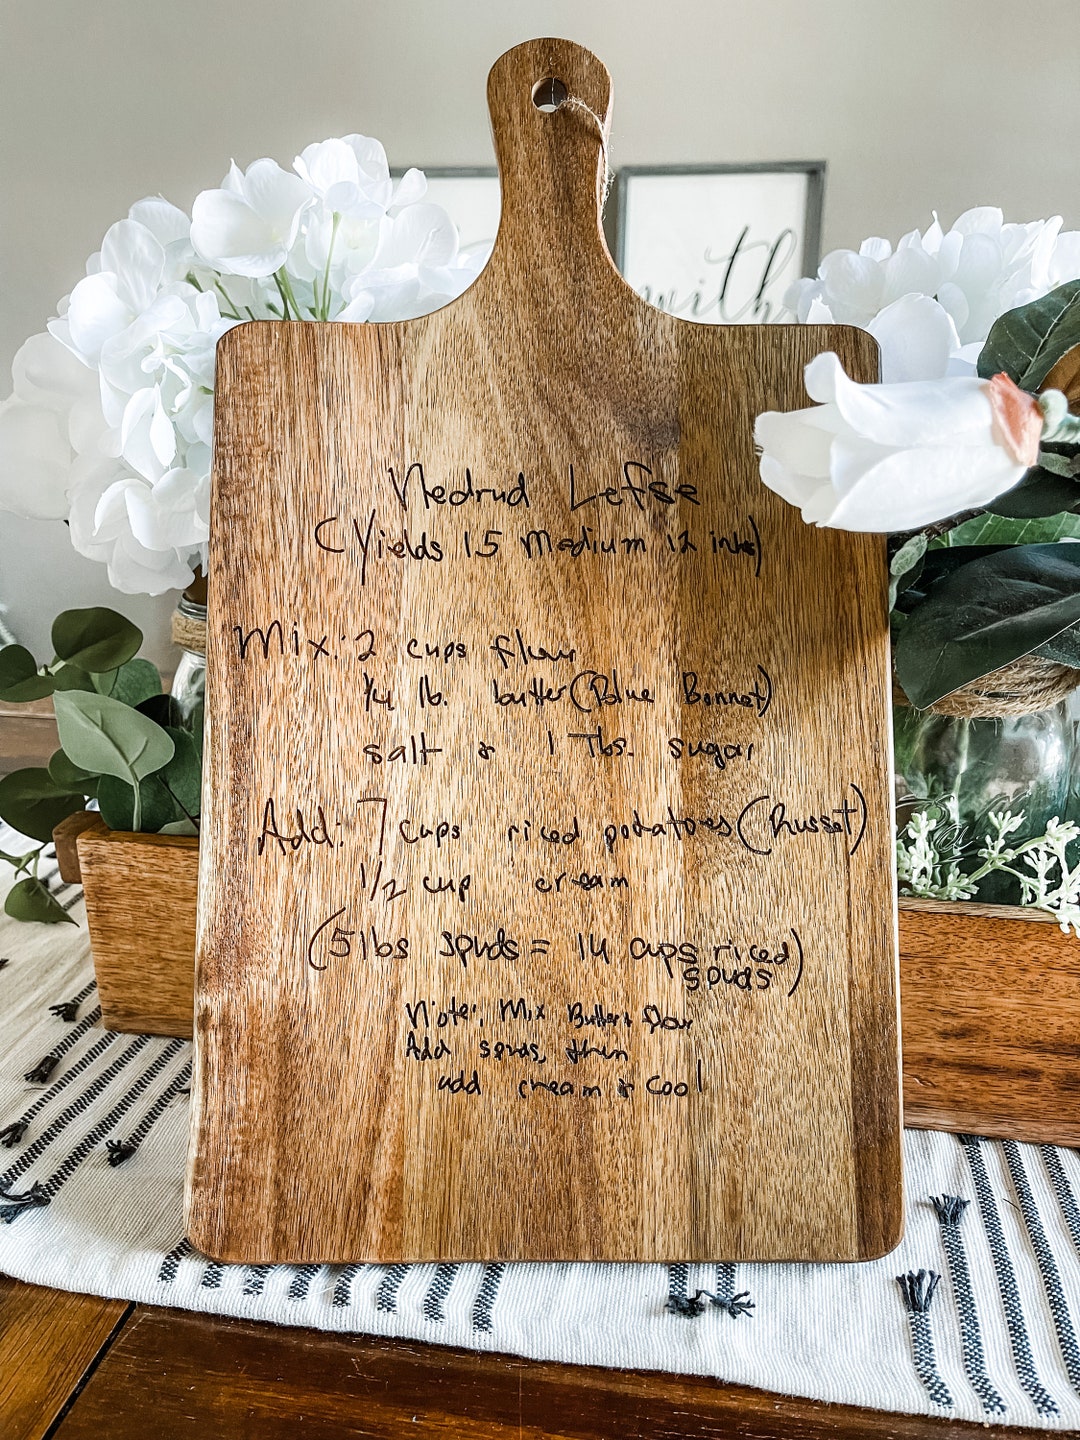 with
Nedrud Lefse
(Yields 15 Medium 12 inches)
Mix: 2 cups flour
1/4 lb. butter (Blue Bonnet)
salt & 1 Tbs. sugar
Add: 7 cups riced potatoes (Russet)
1/2 cup cream
(5 lbs spuds = 14 cups riced
spuds)
Note: Mix Butter & flour
Add spuds, then
add cream & cool